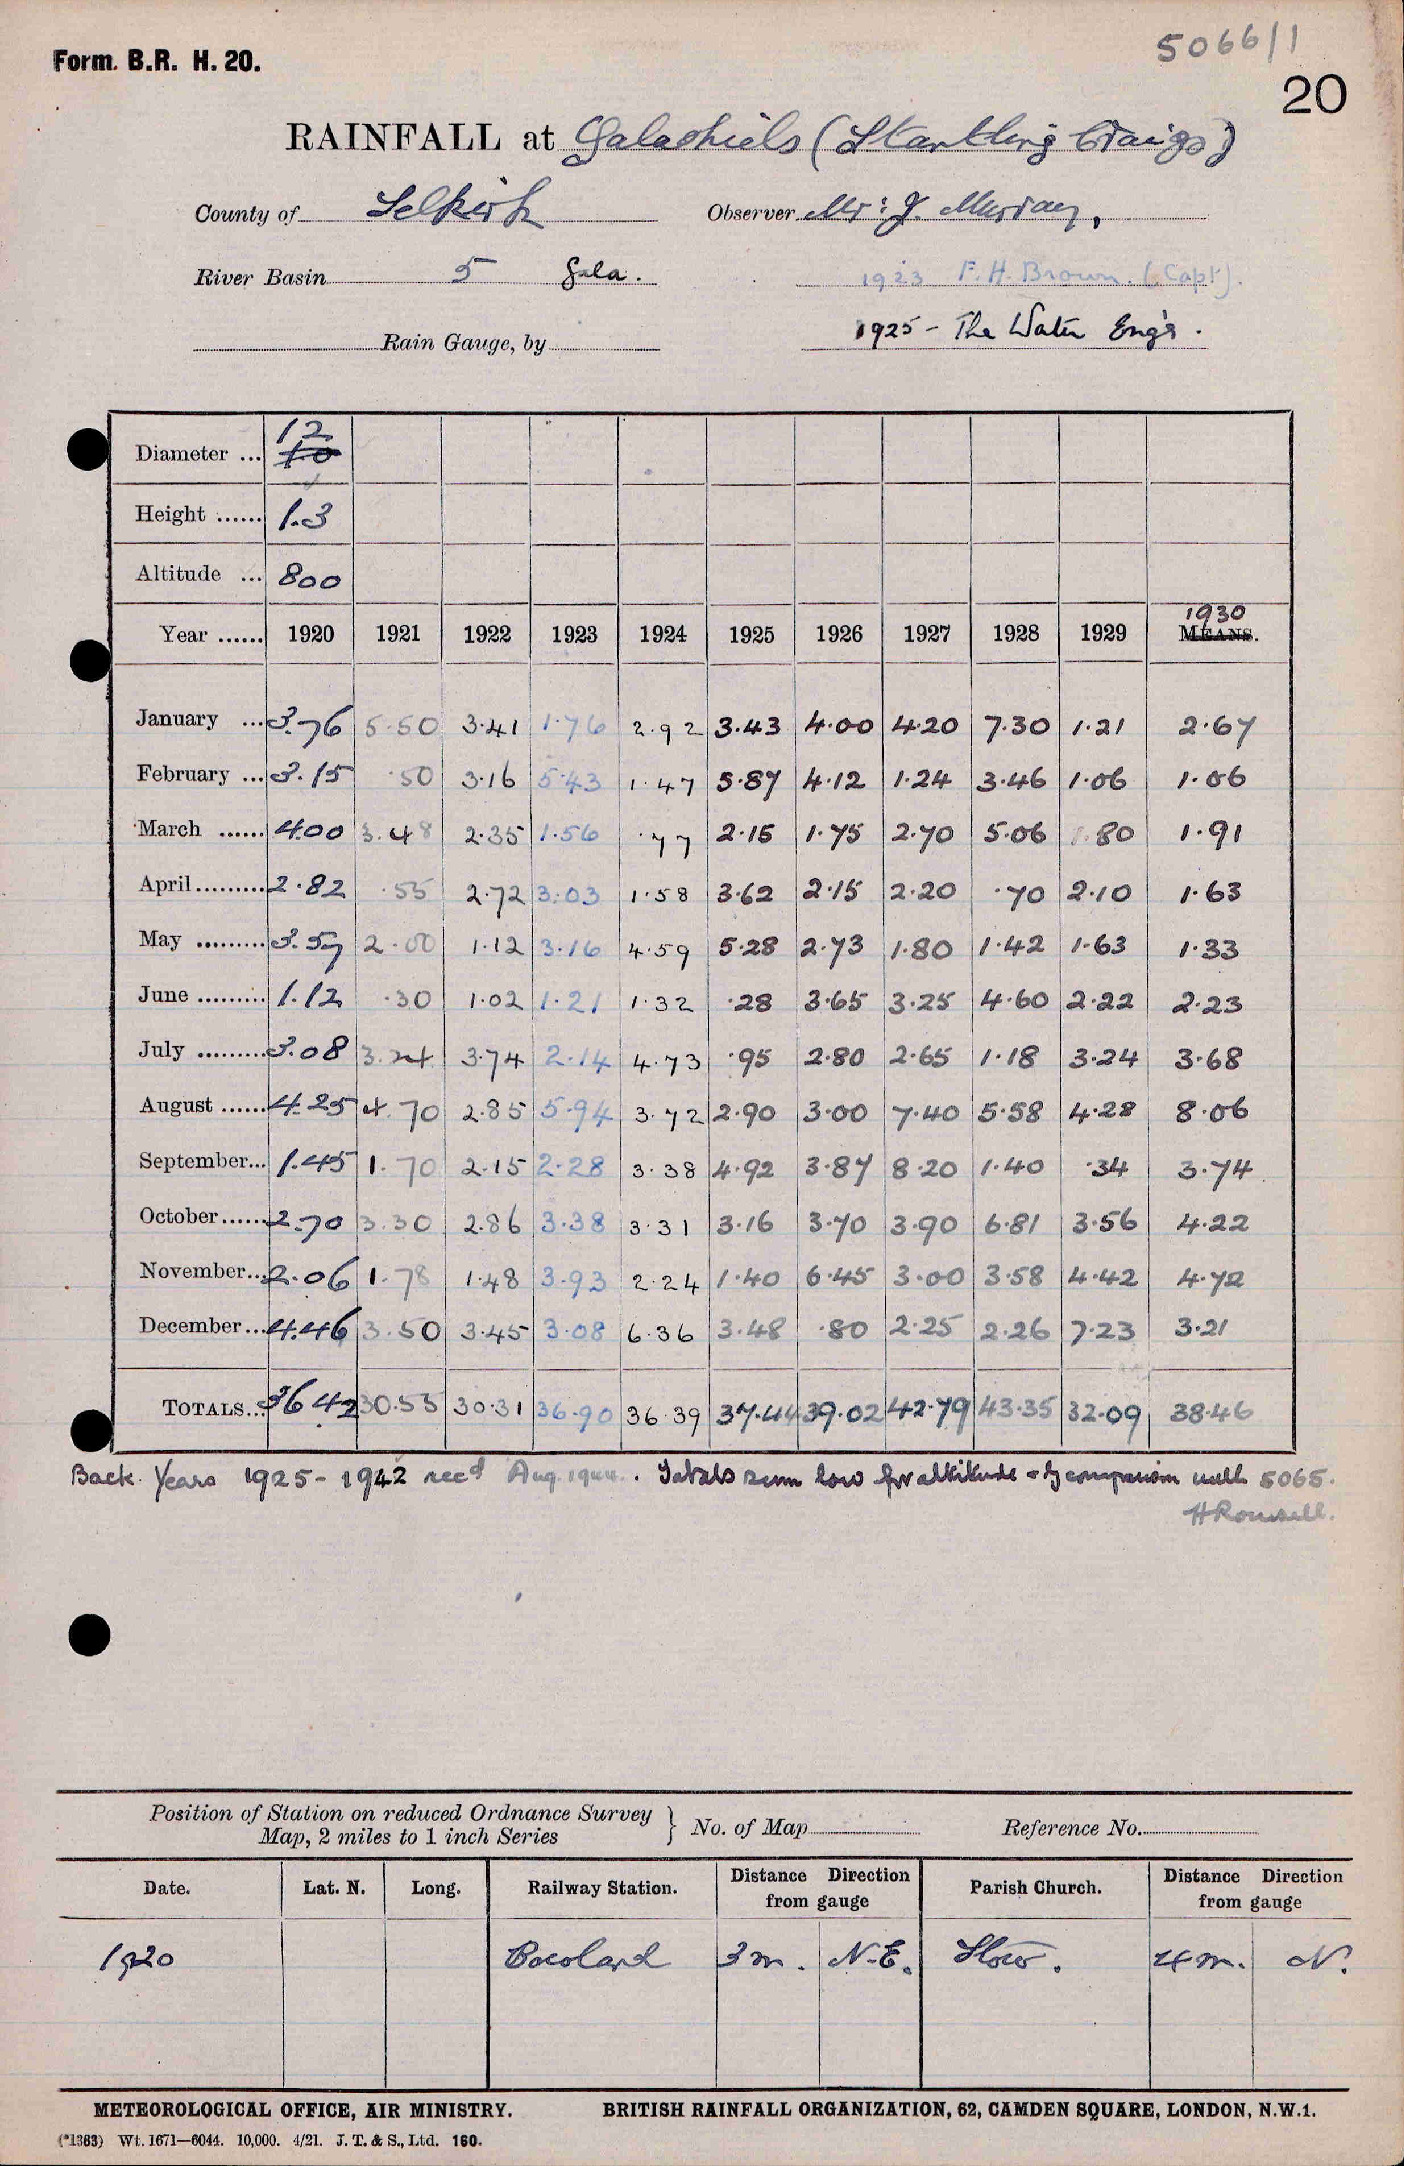 5066/1
Form. B.R. H. 20.
20
RAINFALL at Galashiels (Stantling Craigs)
County of Selkirk Observer Mr: J. Murray,
River Basin 5 Gala. 1923 F. H. Brown. (Capt).
Rain Gauge, by 1925 - The Water Engr.
Diameter ... 12 10
Height ...... 1.3
Altitude ... 800
1930
Year ...... 1920 1921 1922 1923 1924 1925 1926 1927 1928 1929 MEANS.
January ... 3.76 5.50 3.41 1.76 2.92 3.43 4.00 4.20 7.30 1.21 2.67
February ... 3.15 .50 3.16 5.43 1.47 5.87 4.12 1.24 3.46 1.06 1.06
March ...... 4.00 3.48 2.35 1.56 .77 2.15 1.75 2.70 5.06 .80 1.91
April......... 2.82 .55 2.72 3.03 1.58 3.62 2.15 2.20 .70 2.10 1.63
May ......... 3.57 2.00 1.12 3.16 4.59 5.28 2.73 1.80 1.42 1.63 1.33
June ......... 1.12 .30 1.02 1.21 1.32 .28 3.65 3.25 4.60 2.22 2.23
July ......... 3.08 3.24 3.74 2.14 4.73 .95 2.80 2.65 1.18 3.24 3.68
August ...... 4.25 4.70 2.85 5.94 3.72 2.90 3.00 7.40 5.58 4.28 8.06
September... 1.45 1.70 2.15 2.28 3.38 4.92 3.87 8.20 1.40 .34 3.74
October...... 2.70 3.30 2.86 3.38 3.31 3.16 3.70 3.90 6.81 3.56 4.22
November... 2.06 1.78 1.48 3.93 2.24 1.40 6.45 3.00 3.58 4.42 4.72
December... 4.46 3.50 3.45 3.08 6.36 3.48 .80 2.25 2.26 7.23 3.21
TOTALS... 36.42 30.55 30.31 36.90 36.39 37.44 39.02 42.79 43.35 32.09 38.46
Back Years 1925 - 1942 recd Aug. 1944. Totals seem low for altitude & by comparison with 5065.
H Rowsell.
Position of Station on reduced Ordnance Survey Map, 2 miles to 1 inch Series } No. of Map Reference No.
Date. Lat. N. Long. Railway Station. Distance Direction from gauge Parish Church. Distance Direction from gauge
1920 Bowland 3 m. N.E. Stow. 4 m. N.
METEOROLOGICAL OFFICE, AIR MINISTRY. BRITISH RAINFALL ORGANIZATION, 62, CAMDEN SQUARE, LONDON, N.W.1.
(*1383) Wt. 1671—6044. 10,000. 4/21. J. T. & S., Ltd. 160.